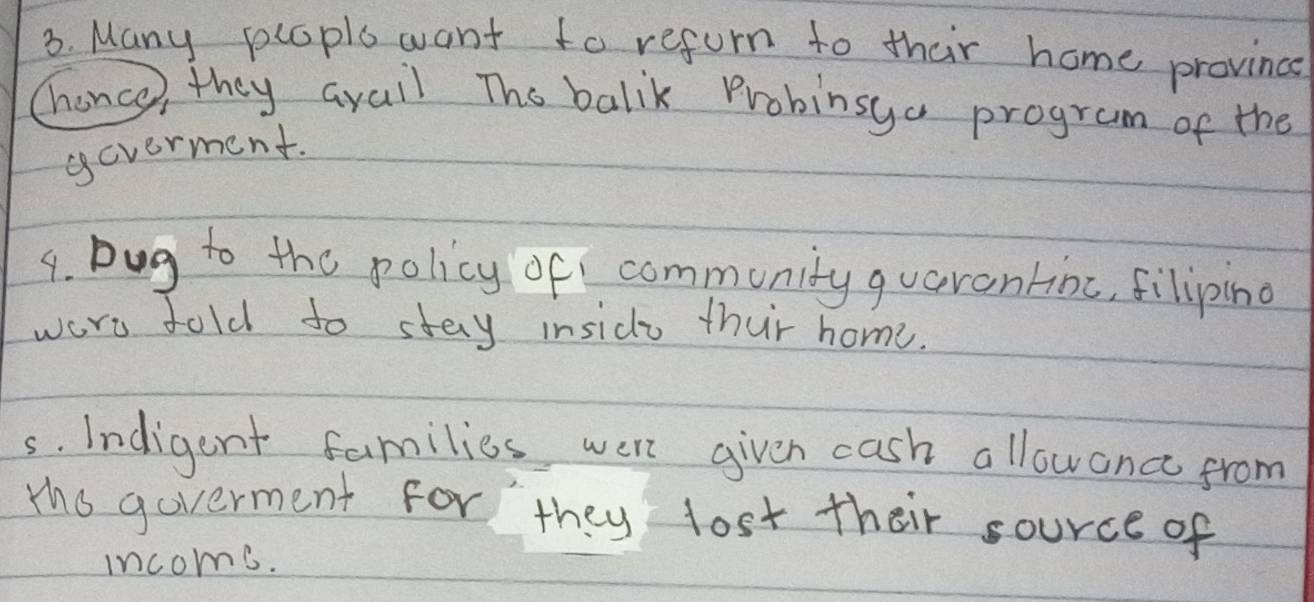 3. Many people want to return to their home province
hence, they avail The balik Probinsya program of the
goverment.
4. Due to the policy of community quarantine, filipino
were told to stay inside their home.
5. Indigent families were given cash allowance from
the goverment For they lost their source of
income.